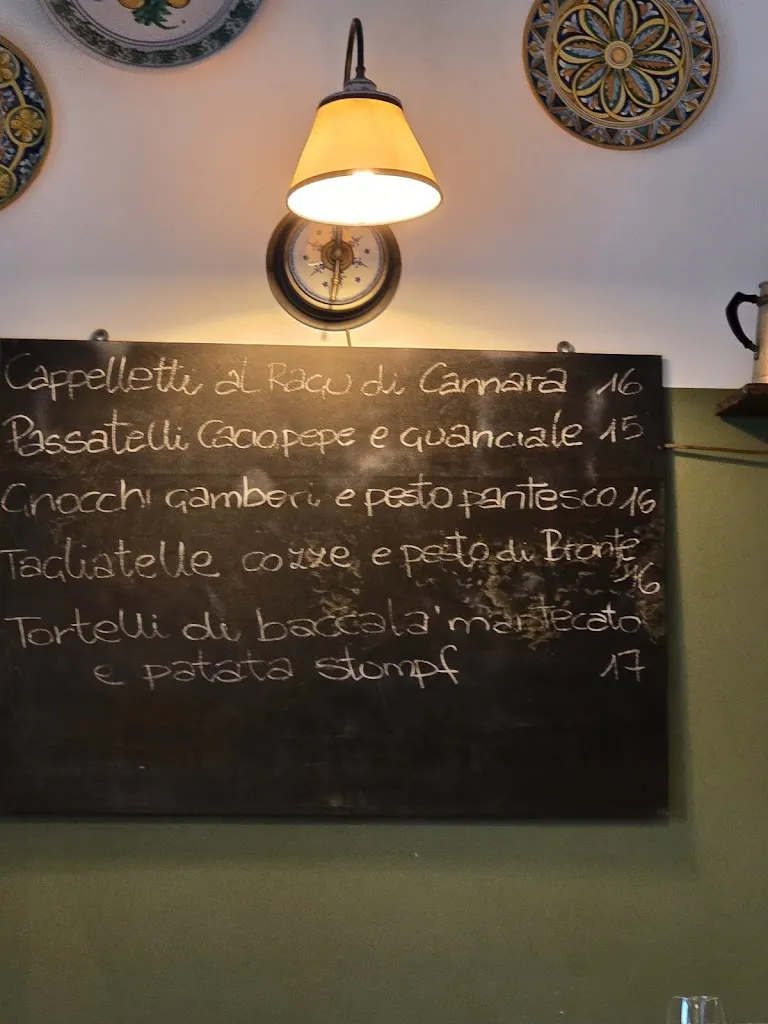 Cappelletti al Ragu di Cannara 16
Passatelli Caciopepe e guanciale 15
Gnocchi gamberi e pesto pantesco 16
Tagliatelle cozze e pesto di Bronte
16
Tortelli di baccala' mantecato
e patata stompf 17